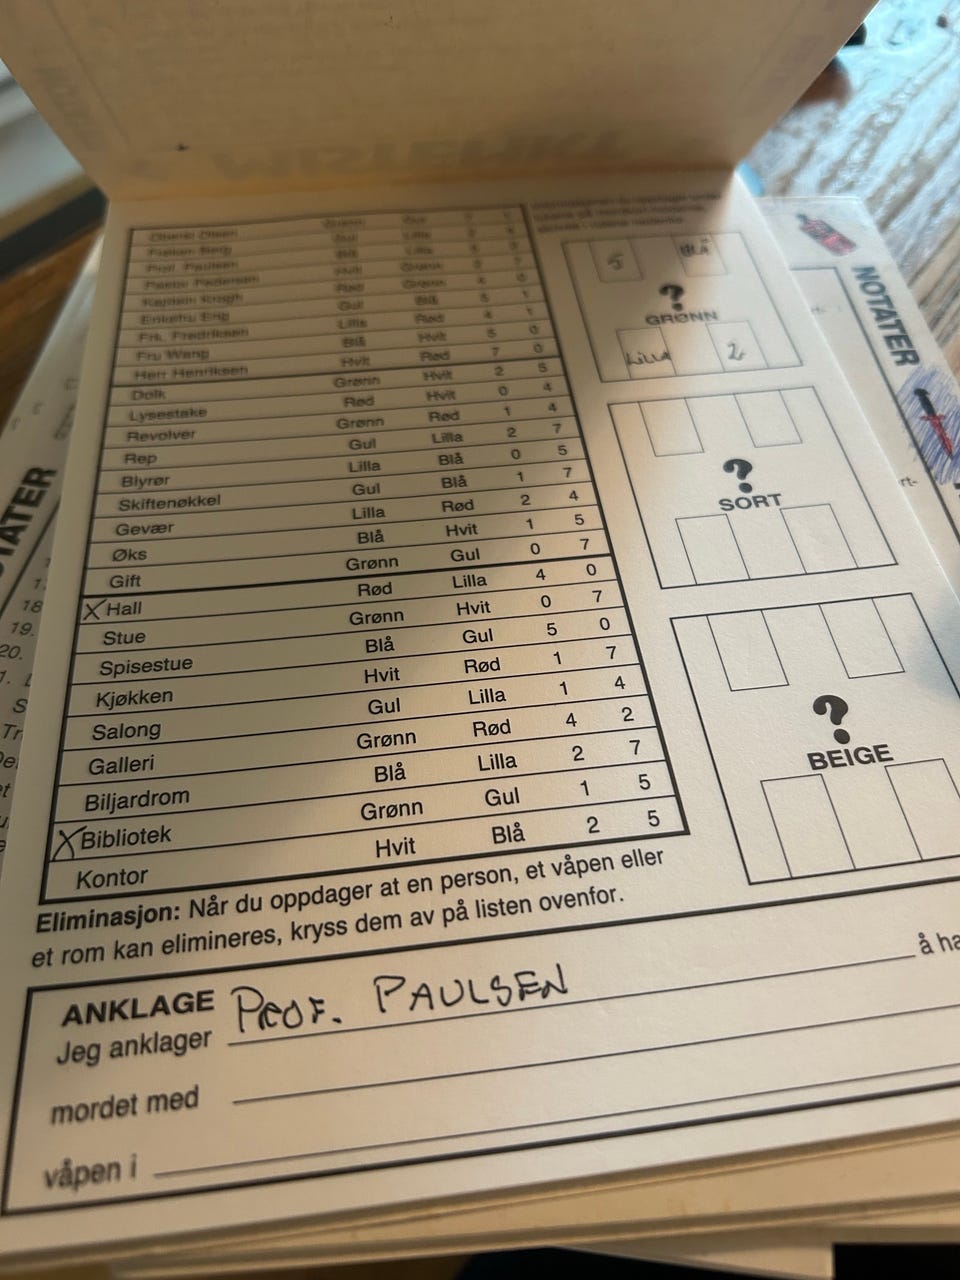 Oberst Olsen Grønn Gul
Berg Gul Lilla
Prof. Paulsen Blå Lilla
Pastor Pedersen Hvit Grønn
Kaptein Krogh Rød Grønn
Enkefru Eng Gul Blå 5 1
Frk. Fredriksen Lilla Rød 4 1
Fru Wang Blå Hvit 5 0
Herr Henriksen Hvit Rød 7 0
Dolk Grønn Hvit 2 5
Lysestake Rød Hvit 0 4
Revolver Grønn Rød 1 4
Rep Gul Lilla 2 7
Blyrør Lilla Blå 0 5
Skiftenøkkel Gul Blå 1 7
Gevær Lilla Rød 2 4
Øks Blå Hvit 1 5
Gift Grønn Gul 0 7
X Hall Rød Lilla 4 0
Stue Grønn Hvit 0 7
Spisestue Blå Gul 5 0
Kjøkken Hvit Rød 1 7
Salong Gul Lilla 1 4
Galleri Grønn Rød 4 2
Biljardrom Blå Lilla 2 7
X Bibliotek Grønn Gul 1 5
Kontor Hvit Blå 2 5
Eliminasjon: Når du oppdager at en person, et våpen eller
et rom kan elimineres, kryss dem av på listen ovenfor.
5 BLÅ
?
GRØNN
LILLA 2
?
SORT
?
BEIGE
ANKLAGE
Jeg anklager PROF. PAULSEN å ha
mordet med
våpen i
NOTATER
TATER
18
19.
20.